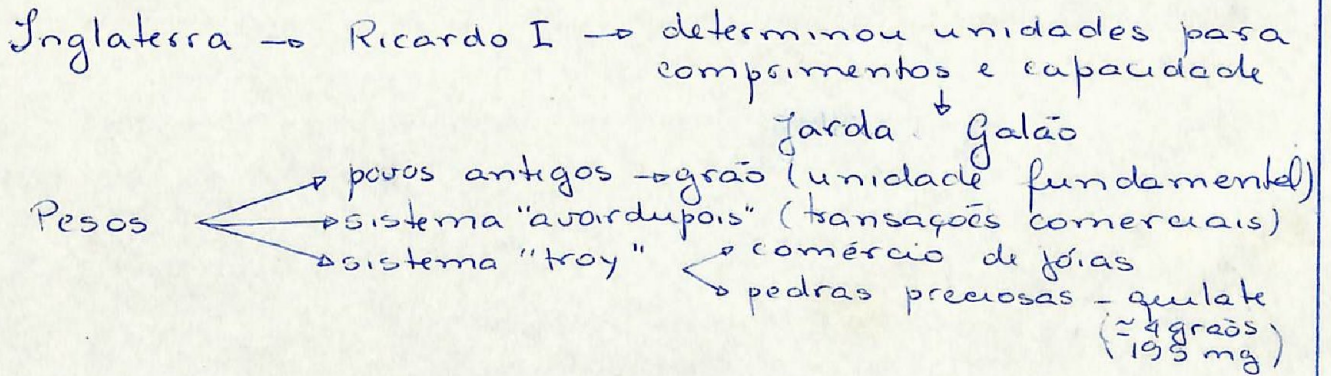 Inglaterra → Ricardo I → determinou unidades para
comprimentos e capacidade
↓
Jarda Galão
povos antigos → grão (unidade fundamental)
Pesos → sistema "avoirdupois" (transações comerciais)
sistema "troy" → comércio de jóias
→ pedras preciosas - quilate
(≃ 4 grãos
195 mg)